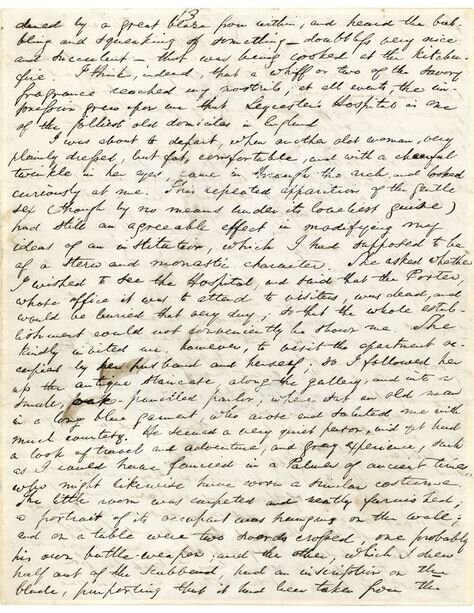 13
dened by a great blaze from within, and heard the bub-
bling and squeaking of something — doubtless very nice
and succulent — that was being cooked at the kitchen-
fire. I think, indeed, that a whiff or two of the savory
fragrance reached my nostrils; at all events, the im-
pression grew upon me that Leycester's Hospital is one
of the jolliest old domiciles in England
I was about to depart, when another old woman, very
plainly dressed, but fat, comfortable, and with a cheerful
twinkle in her eyes, came in through the arch, and looked
curiously at me. This repeated apparition of the gentle
sex (though by no means under its loveliest guise)
had still an agreeable effect in modifying my
ideas of an institution, which I had supposed to be
of a stern and monastic character. She asked whether
I wished to see the Hospital, and said that the Porter,
whose office it was to attend to visitors, was dead, and
would be buried that very day, so that the whole estab-
lishment could not conveniently be shown me. She
kindly invited me, however, to visit the apartment oc-
cupied by her husband and herself; so I followed her
up the antique staircase, along the gallery, and into a
small, oak-panelled parlor, where sat an old man
in a long blue garment, who arose and saluted me with
much courtesy. He seemed a very quiet person, and yet had
a look of travel and adventure, and gray experience, such
as I could have fancied in a Palmer of ancient time,
who might likewise have worn a similar costume.
The little room was carpeted and neatly furnished;
a portrait of its occupant was hanging on the wall;
and on a table were two swords crossed, one probably
his own battle-weapon, and the other, which I drew
half out of the scabbard, had an inscription on the
blade, purporting that it had been taken from the